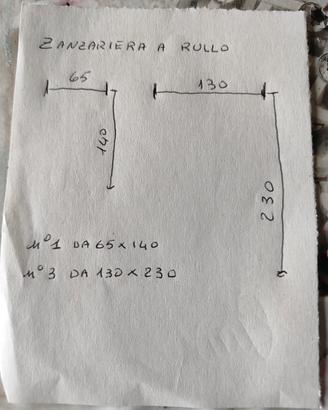 ZANZARIERA A RULLO
65
130
140
230
N° 1 DA 65 x 140
N° 3 DA 130 x 230